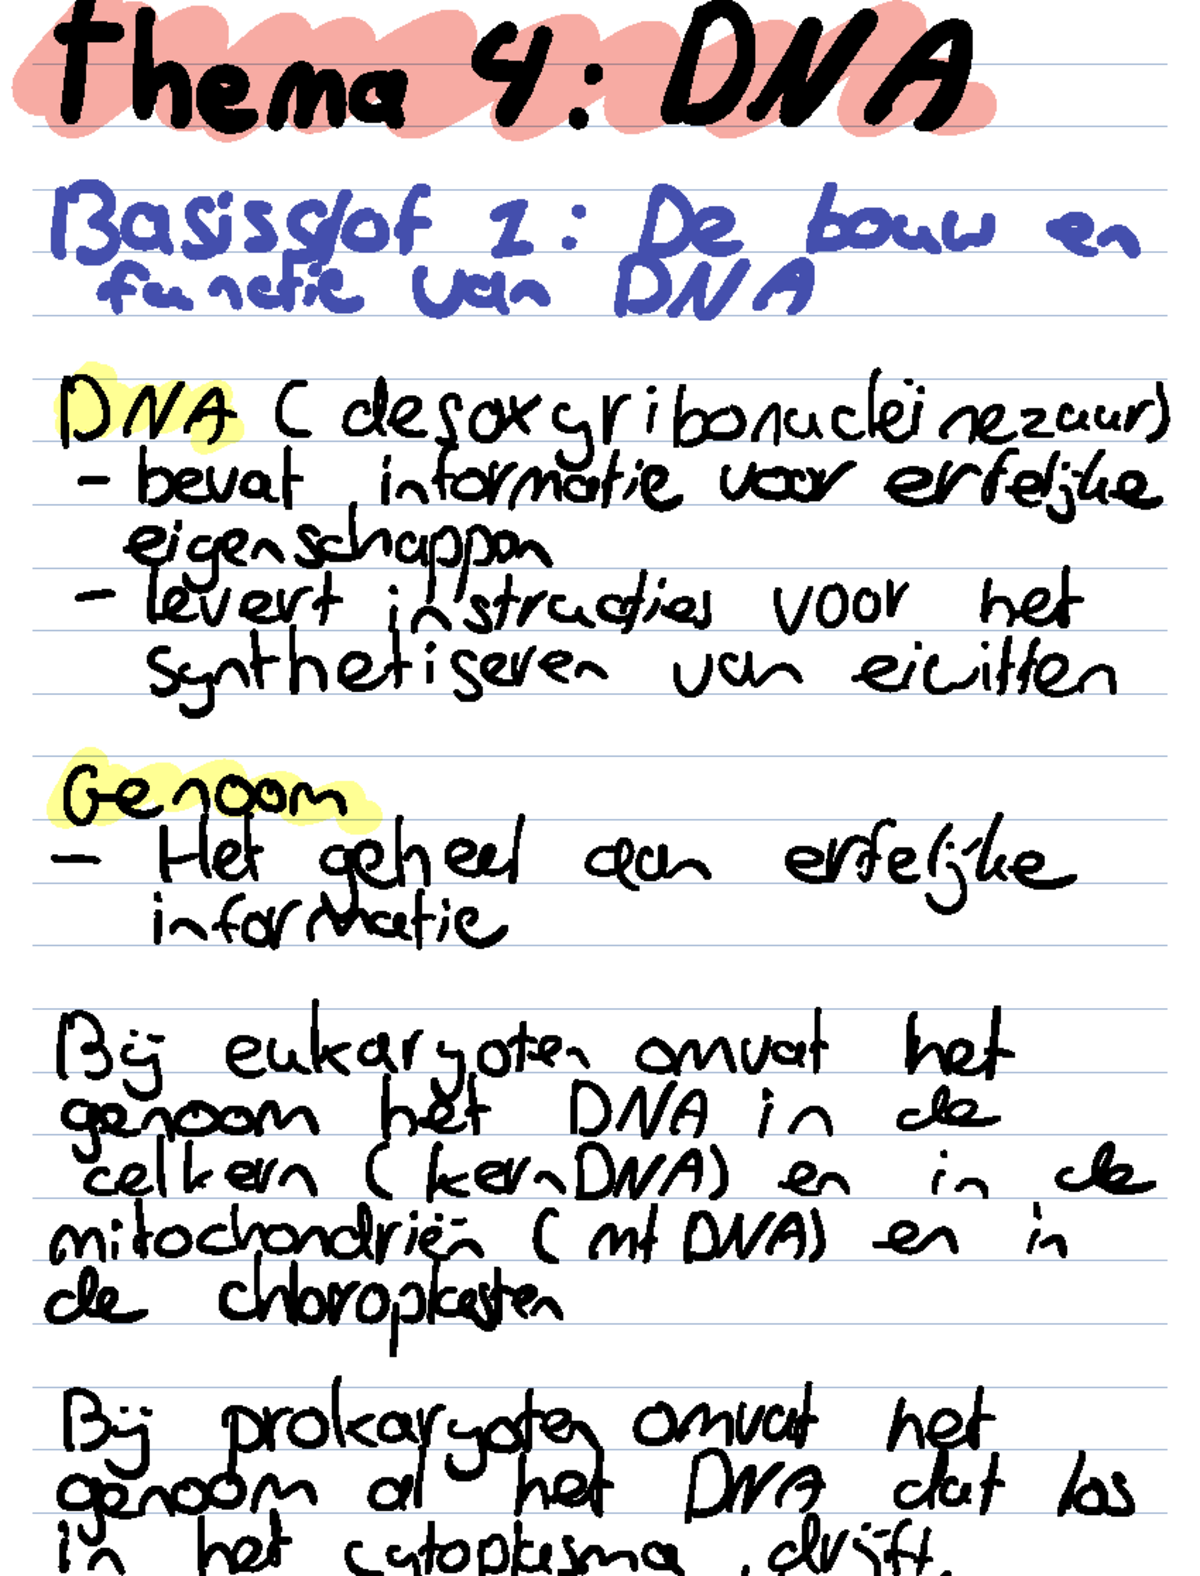 Thema 4: DNA
Basisstof 1: De bouw en
functie van DNA
DNA (desoxyribonucleïnezuur)
- bevat informatie voor erfelijke
eigenschappen
- levert instructies voor het
synthetiseren van eiwitten
Genoom
- Het geheel aan erfelijke
informatie
Bij eukaryoten omvat het
genoom het DNA in de
celkern (kernDNA) en in de
mitochondriën (mtDNA) en in
de chloroplasten
Bij prokaryoten omvat het
genoom al het DNA dat los
in het cytoplasma drijft.